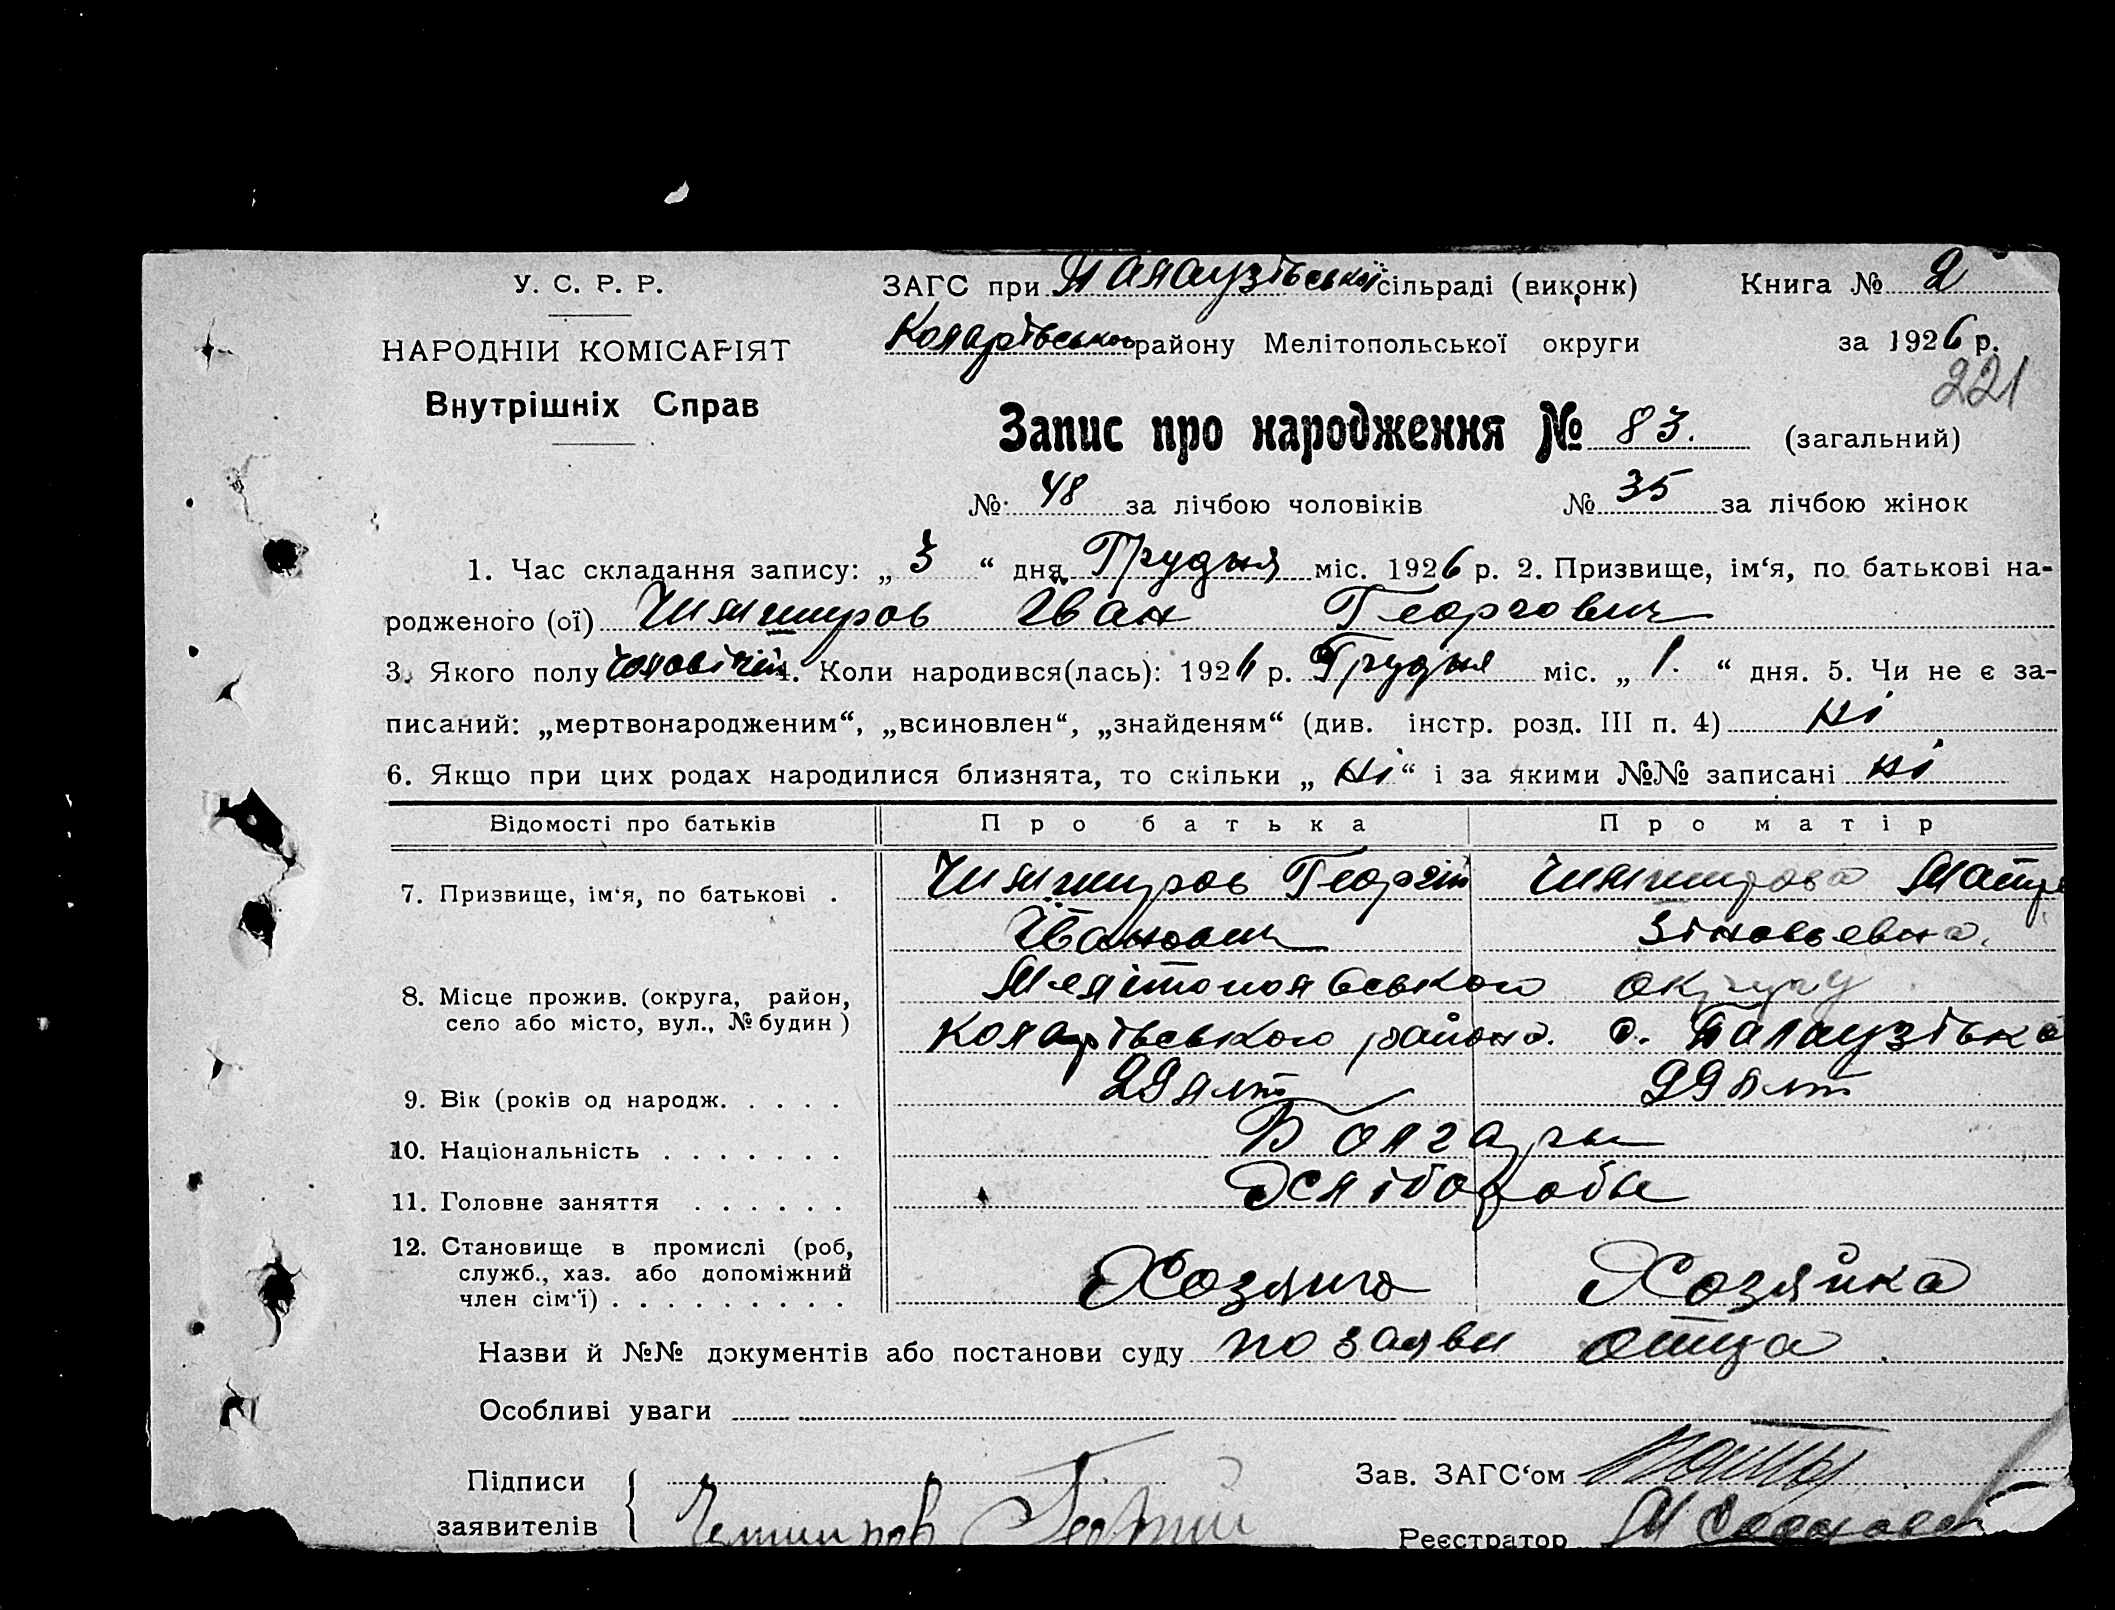 У. С. Р. Р.
НАРОДНІЙ КОМІСАРІЯТ
Внутрішніх Справ
ЗАГС при Палаузівській сільраді (виконк) Книга № 2
Коларівського району Мелітопольської округи за 1926 р.
221
Запис про народження № 83. (загальний)
№ 48 за лічбою чоловіків № 35 за лічбою жінок
1. Час складання запису: „ 3 “ дня Грудня міс. 1926 р. 2. Призвище, ім‘я, по батькові на-
родженого (ої) Чимширов Іван Георгович
3. Якого полу чоловічій 4. Коли народився(лась): 1926 р. Грудня міс. „ 1 “ дня. 5. Чи не є за-
писаний: „мертвонародженим“, „всиновлен“, „знайденям“ (див. інстр. розд. III п. 4) Ні
6. Якщо при цих родах народилися близнята, то скільки „ Ні “ і за якими №№ записані Ні
Відомості про батьків Про батька Про матір
7. Призвище, ім‘я, по батькові . Чимширов Георгій Чимширова
Іванович Зіновьевна.
8. Місце прожив. (округа, район, Мелітопольського округу
село або місто, вул., № будин ) Коларівського района. с. Палаузівка
9. Вік (років од народж. . . . . 29 літ 29 літ
10. Національність . . . . . . . Болгары
11. Головне заняття . . . . . . Хліборобы
12. Становище в промислі (роб,
служб., хаз. або допоміжний Хозяин Хозяйка
член сім‘ї) . . . . . . . . .
Назви й №№ документів або постанови суду по заяви отца
Особливі уваги
Підписи Зав. ЗАГС‘ом
заявителів Чимширов Георгий Реєстратор